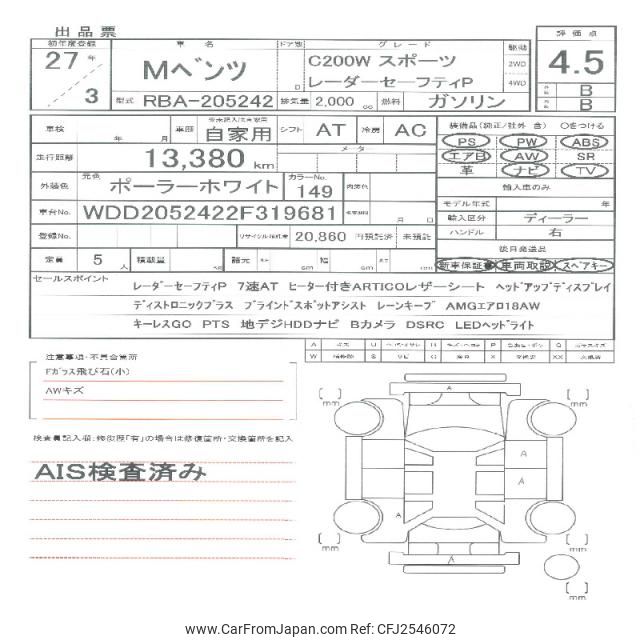 出品票
初年度登録 車名 ドア別 グレード 駆動 評価点
27年 Mベンツ D C200W スポーツ 2WD 4.5
3 レーダーセーフティP 4WD B
型式 RBA-205242 排気量 2,000 cc 燃料 ガソリン B
車検 年 月 車歴 自家用 シフト AT 冷房 AC 装備品(純正/社外 含) ○をつける
走行距離 13,380 km メーター PS PW ABS
エアB AW SR
革 ナビ TV
外装色 元色 ポーラーホワイト カラーNo. 149 内装色 輸入車のみ
モデル年式 年
車台No. WDD2052422F319681 月 日 輸入区分 ディーラー
登録No. リサイクル預託金 20,860 円預託済 未預託 ハンドル 右
定員 5人 積載量 kg 諸元 長 cm 幅 cm 高 cm 後日発送品
新車保証書 車両取説 スペアキー
セールスポイント
レーダーセーフティP 7速AT ヒーター付きARTICOレザーシート ヘッドアップディスプレイ
ディストロニックプラス ブラインドスポットアシスト レーンキープ AMGエアロ18AW
キーレスGO PTS 地デジHDDナビ Bカメラ DSRC LEDヘッドライト
注意事項・不具合箇所
Fガラス飛び石(小)
AWキズ
検査員記入欄:修復歴「有」の場合は修復箇所・交換箇所を記入
AIS検査済み
A U H P Q
W S C X XX
mm mm
A
A
A
A
A
mm mm
mm
© www.CarFromJapan.com Ref: CFJ2546072